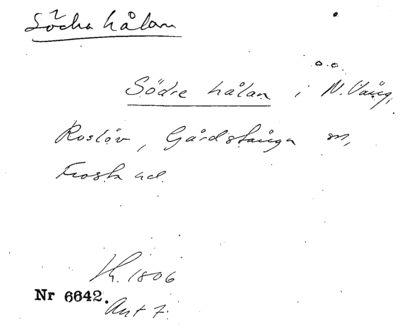 Södra hålan
Södre hålan i N. Vång,
Roslöv, Gårdstånga sn,
Frosta hd.
h. 1806
Nr 6642.
Akt 7.